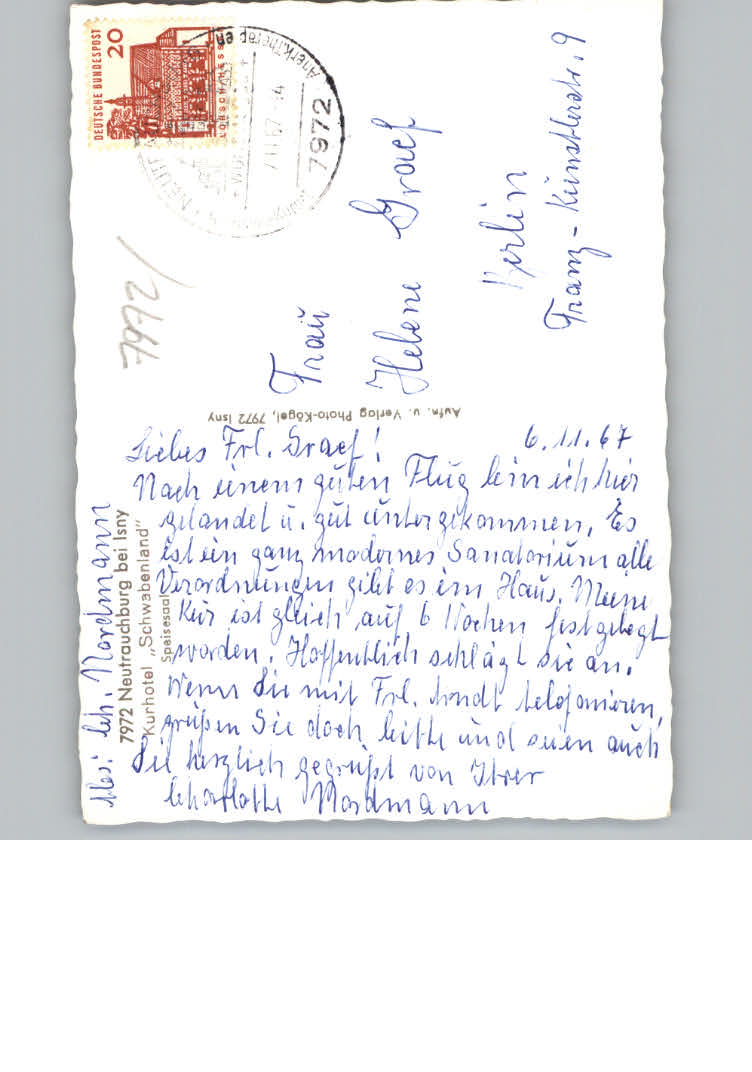 DEUTSCHE BUNDESPOST
20
7972
Frau
Helene Graef
Berlin
Franz-Künstlerstr. 9
7997/2
Aufn. u. Verlag Photo-Kögel, 7972 Isny
7972 Neutrauchburg bei Isny
Kurhotel „Schwabenland"
Speisesaal
Abs: Ch. Nordmann
6.11.67
Liebes Frl. Graef!
Nach einem guten Flug bin ich hier
gelandet u. gut untergekommen. Es
ist ein ganz modernes Sanatorium alle
Verordnungen gibt es im Haus. Meine
Kur ist gleich auf 6 Wochen festgelegt
worden. Hoffentlich schlägt sie an.
Wenn Sie mit Frl. telefonieren,
grüßen Sie doch bitte und seien auch
Sie herzlich gegrüßt von Ihrer
Charlotte Nordmann